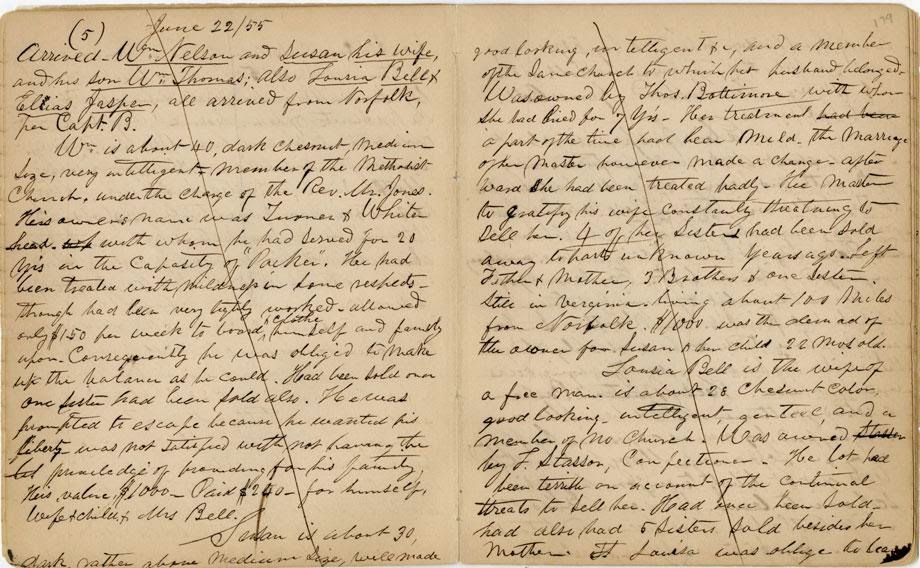 (5) June 22/55
Arrived - Wm Nelson and Susan his wife,
and his son Wm Thomas; also Louisa Bell &
Elias Jasper, all arrived from Norfolk,
per Capt. B.
Wm is about 40, dark chesnut, medium
size, very intelligent - member of the Methodist
Church, under the charge of the Rev. Mr. Jones.
His owner's name was Turner & White
head with whom he had served for 20
Yrs in the Capacity of "Packer". He had
been treated with mildness in some respects -
though had been very tightly worked - allowed
only $1.50 per week to board, clothe himself and family
upon. Consequently he was obliged to make
up the balance as he could. Had been sold once
one sister had been sold also. He was
prompted to escape because he wanted his
liberty was not satisfied with not having the
priviledge of providing for his family,
His value, $1000 - Paid $240 - for himself,
wife & child, & Mrs Bell.
Susan is about 30,
dark, rather above medium size, well made
179
good looking, intelligent &c, and a member
of the same church to which her husband belonged.
Was owned by Thos. Bottimore with whom
she had lived for Yrs - Her treatment had been
a part of the time had been mild, the marriage
of her master however made a change - after
ward she had been treated badly - Her master
to gratify his wife constantly threatning to
sell her. 4 of her sisters had been sold
away to parts unknown Years ago. Left
Father & Mother, 3 Brothers & one sister
still in Verginia living about 100 miles
from Norfolk. $1000 was the demad of
the owner for Susan & her child 22 mos old.
Louisa Bell is the wife of
a free man is about 28 Chesnut color,
good looking intelligent, genteel, and a
member of no Church. Was owned
by L. Stasson, Confectioner - He lot had
been terrible on account of the continual
threats to sell her. Had once been sold -
had also had 5 sisters sold besides her
Mother. Louisa was oblige to leave